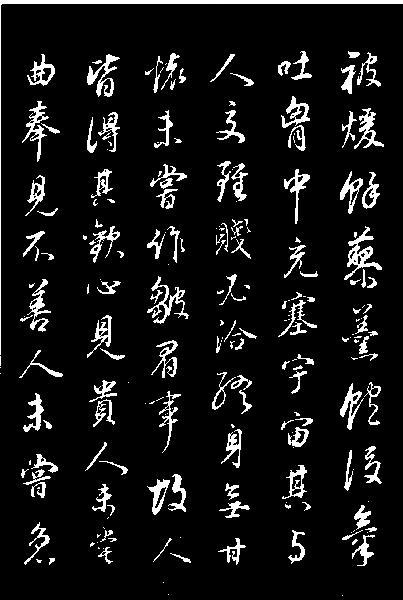 被煖餘藜羹飽後氣
吐胷中充塞宇宙其与
人交雖賤必洽終身無甘
壞未嘗作皺眉事故人
皆得其歡心見貴人未嘗
曲奉見不善人未嘗急